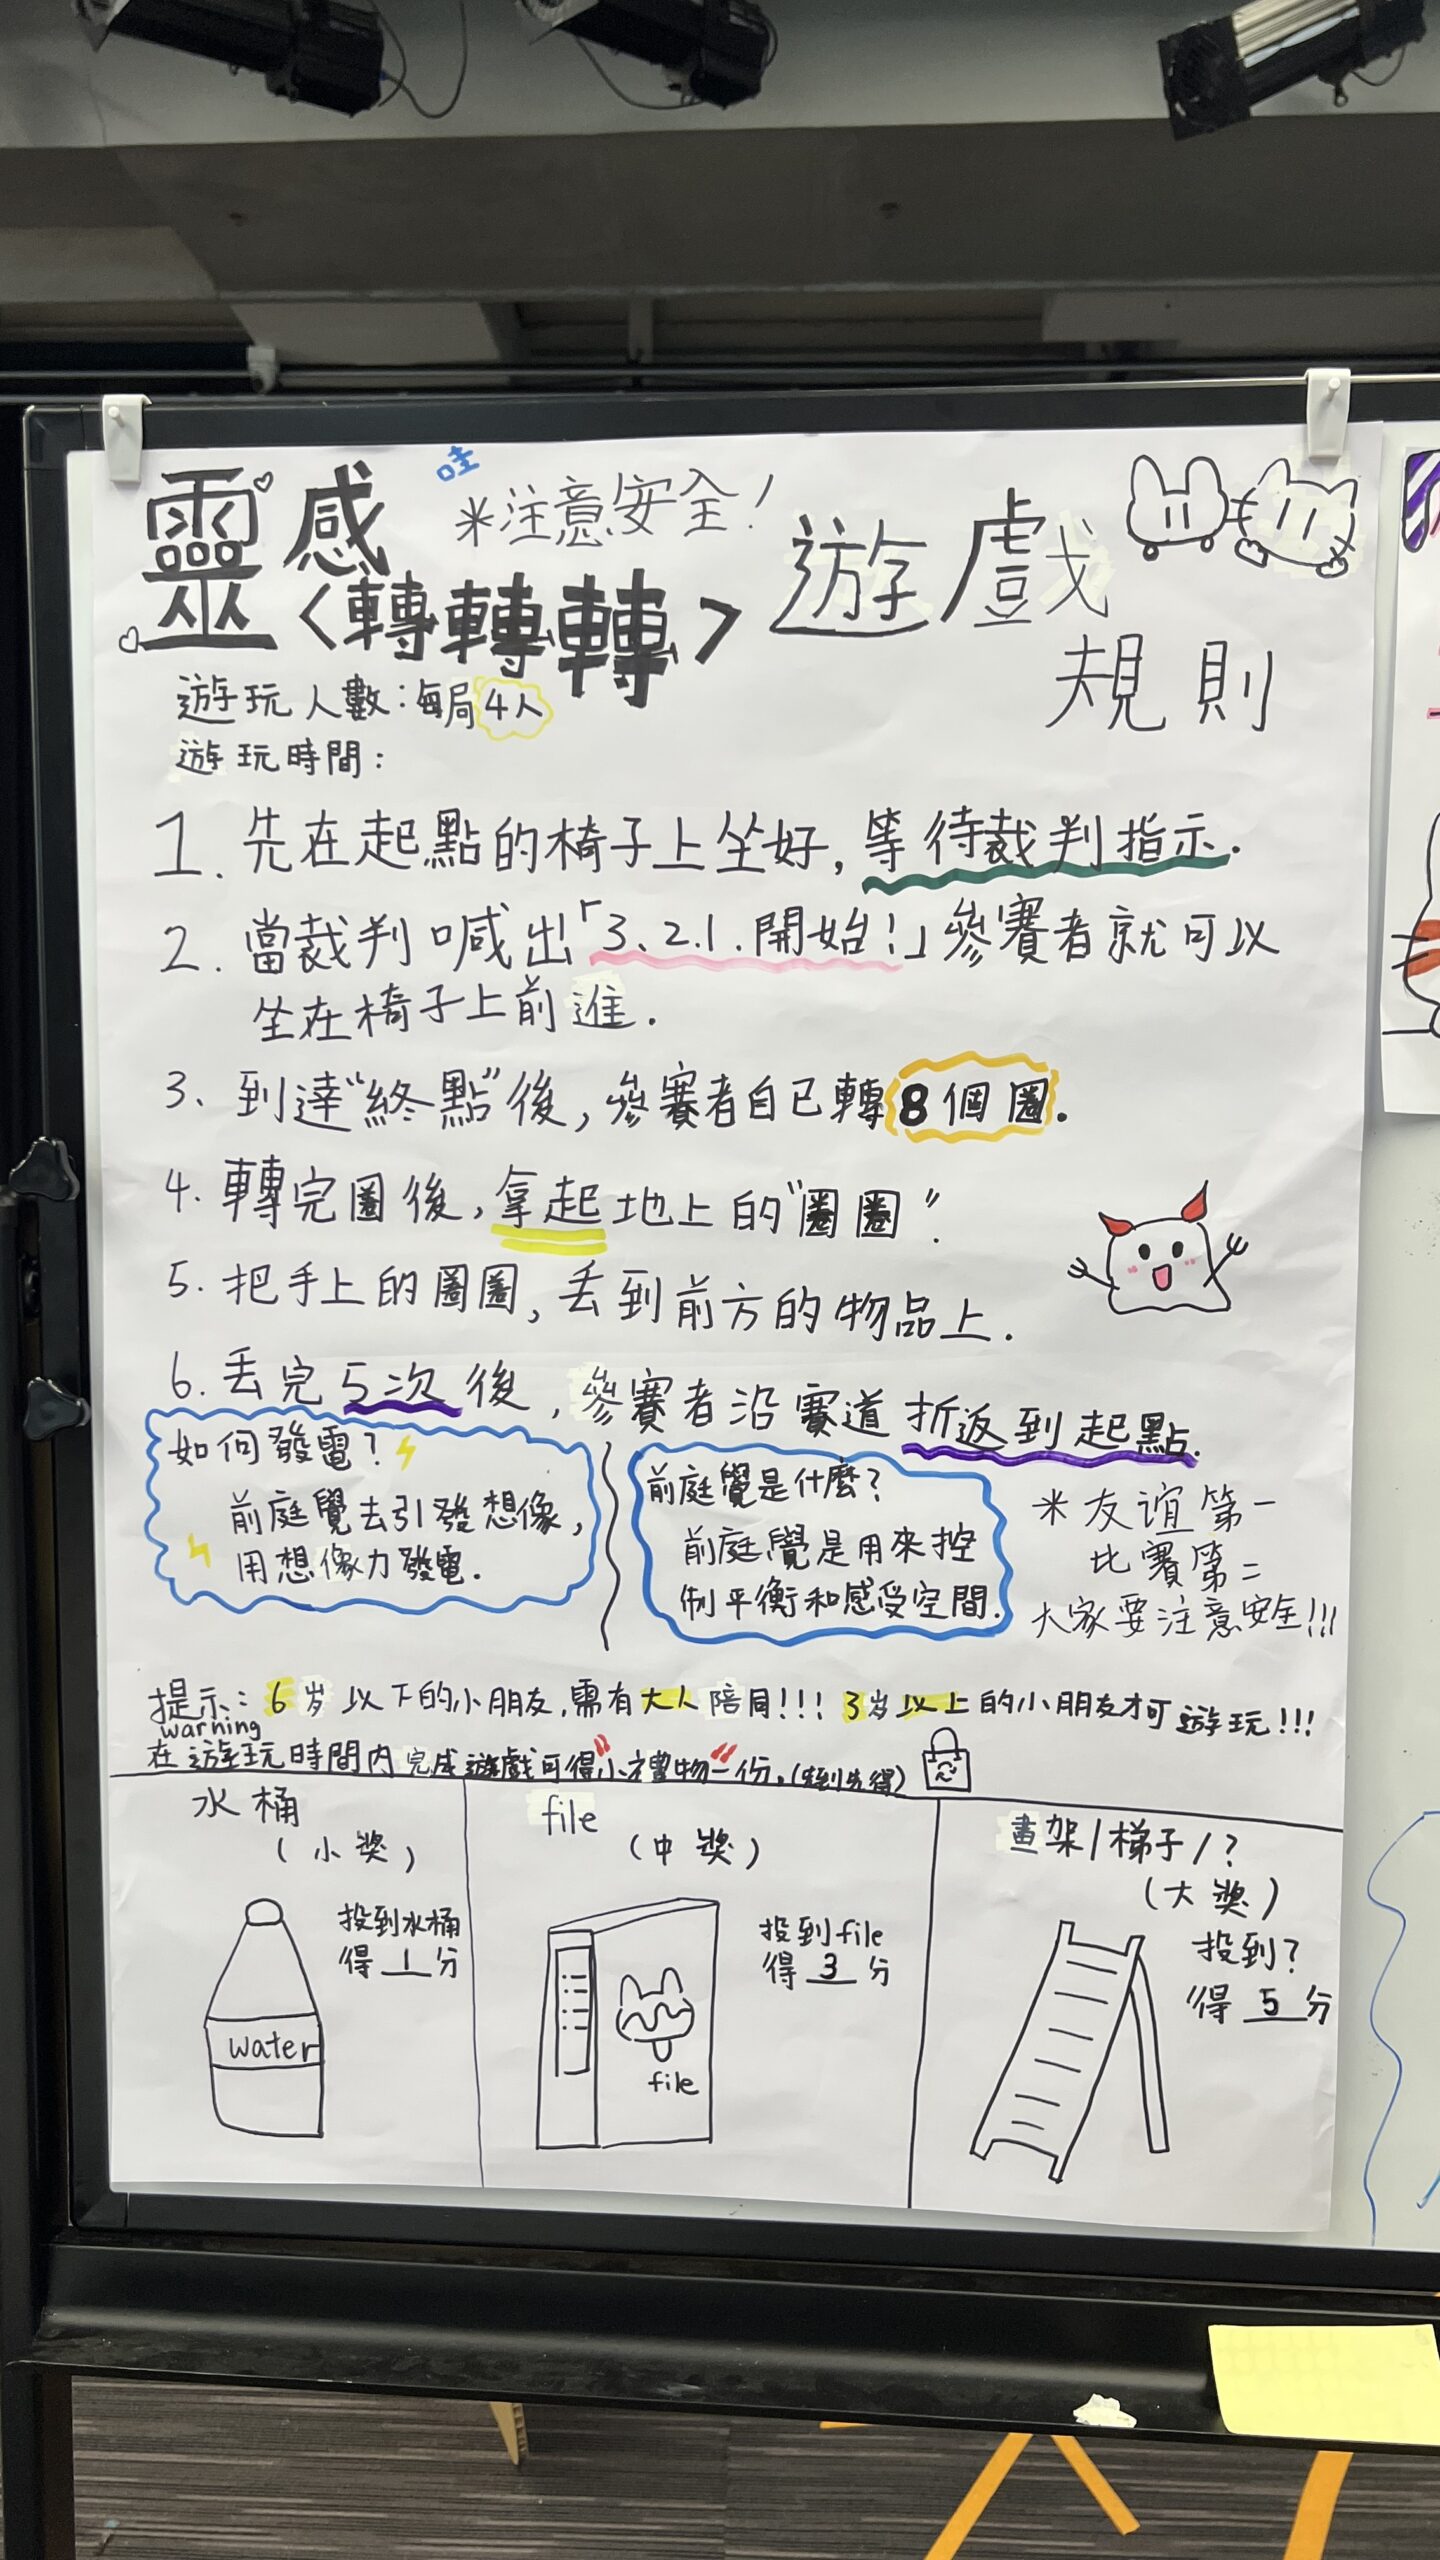 哇
靈感
*注意安全!
<轉轉轉>
遊戲
規則
遊玩人數:每局4人
遊玩時間:
1. 先在起點的椅子上坐好,等待裁判指示.
2. 當裁判喊出「3、2.1.開始!」參賽者就可以
坐在椅子上前進.
3、到達“終點”後,參賽者自己轉8個圈.
4.轉完圈後,拿起地上的“圈圈”.
5.把手上的圈圈,丟到前方的物品上.
6.丟完5次後,參賽者沿賽道折返到起點.
如何發電?
前庭覺去引發想像,
用想像力發電.
前庭覺是什麼?
前庭覺是用來控
制平衡和感受空間.
*友誼第一
比賽第二
大家要注意安全!!!
提示:6岁以下的小朋友,需有大人陪同!!! 3岁以上的小朋友才可遊玩!!!
warning
在遊玩時間內完成遊戲可得"小禮物"一份。(先到先得)
水桶
(小獎)
投到水桶
得 1 分
water
file
(中獎)
投到file
得 3 分
file
畫架/梯子/?
(大獎)
投到?
得 5 分